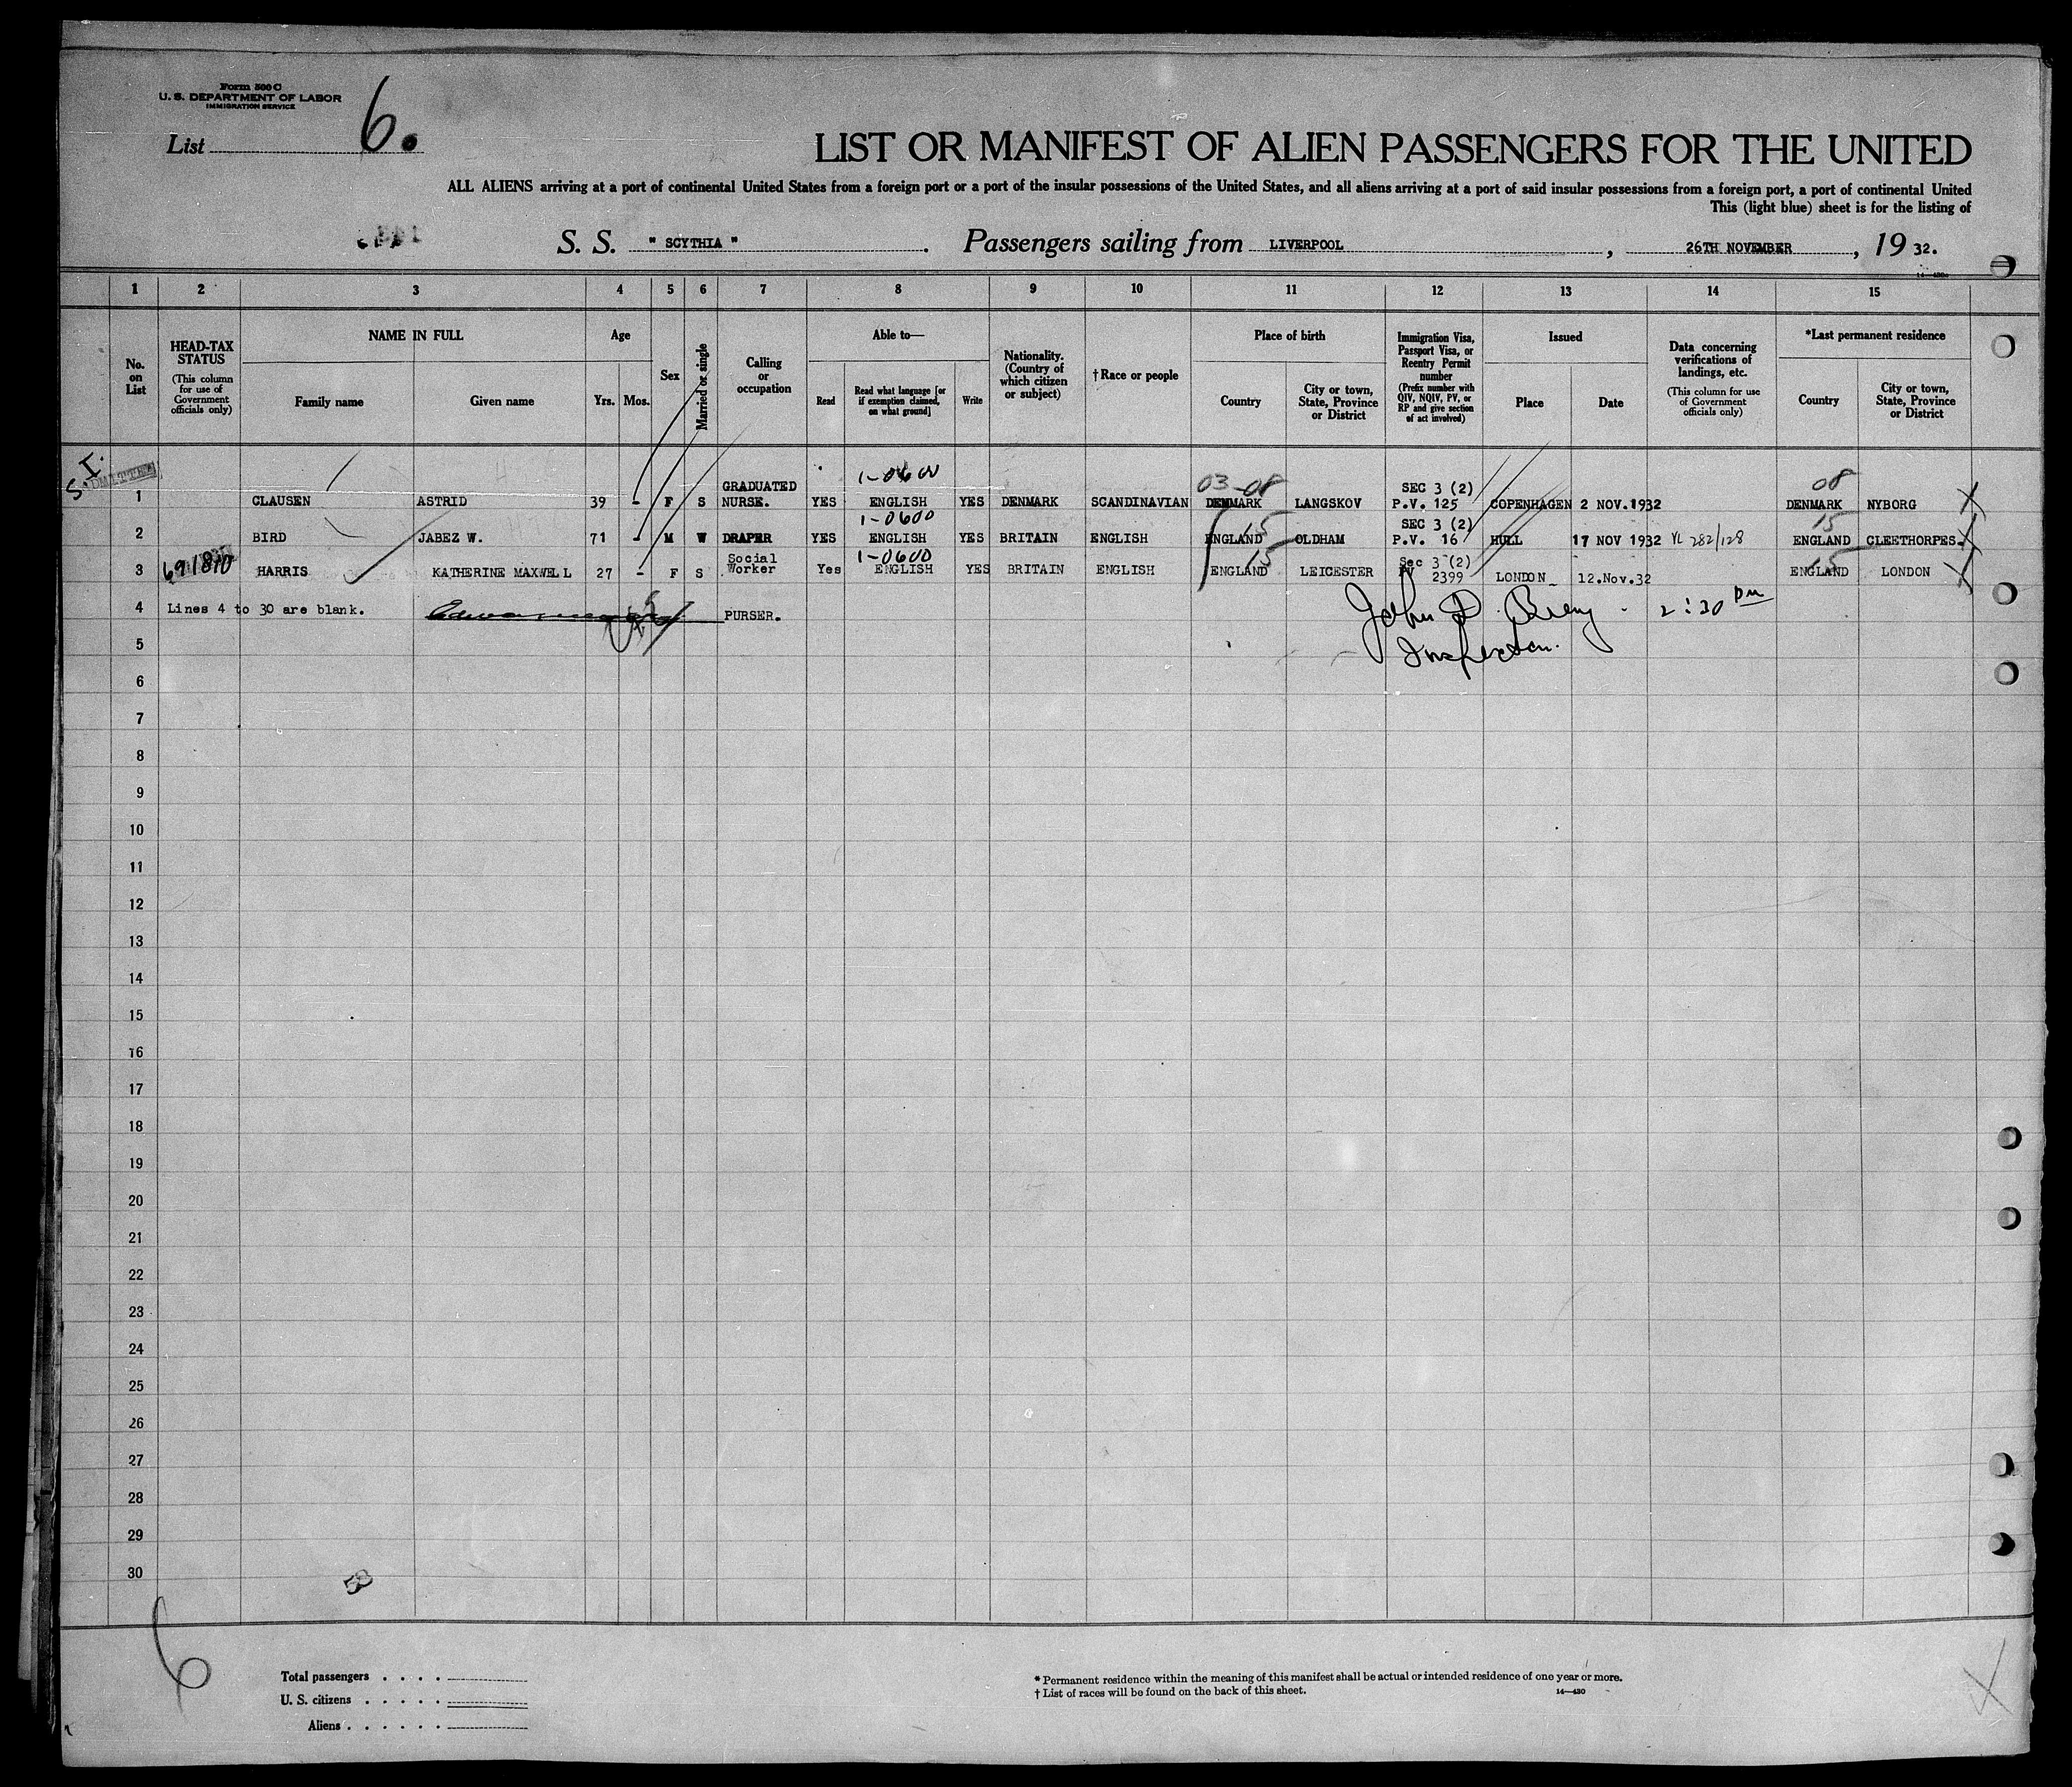 Form 500 C
U. S. DEPARTMENT OF LABOR
IMMIGRATION SERVICE
List 6.
LIST OR MANIFEST OF ALIEN PASSENGERS FOR THE UNITED
ALL ALIENS arriving at a port of continental United States from a foreign port or a port of the insular possessions of the United States, and all aliens arriving at a port of said insular possessions from a foreign port, a port of continental United
This (light blue) sheet is for the listing of
S. S. " SCYTHIA ". Passengers sailing from LIVERPOOL, 26TH NOVEMBER, 19 32.
1 2 3 4 5 6 7 8 9 10 11 12 13 14 15
No. on List
HEAD-TAX STATUS (This column for use of Government officials only)
NAME IN FULL
Family name Given name
Age
Yrs. Mos.
Sex
Married or single
Calling or occupation
Able to—
Read Read what language [or if exemption claimed, on what ground] Write
Nationality. (Country of which citizen or subject)
†Race or people
Place of birth
Country City or town, State, Province or District
Immigration Visa, Passport Visa, or Reentry Permit number (Prefix number with QIV, NQIV, PV, or RP and give section of act involved)
Issued
Place Date
Data concerning verifications of landings, etc. (This column for use of Government officials only)
*Last permanent residence
Country City or town, State, Province or District
S.I. ADMITTED
1-0600 03-08 08
1 CLAUSEN ASTRID 39 - F S GRADUATED NURSE. YES ENGLISH YES DENMARK SCANDINAVIAN DENMARK LANGSKOV SEC 3 (2) P.V. 125 COPENHAGEN 2 NOV.1932 DENMARK NYBORG
1-0600 15 15
2 BIRD JABEZ W. 71 - M W DRAPER YES ENGLISH YES BRITAIN ENGLISH ENGLAND OLDHAM SEC 3 (2) P.V. 16 HULL 17 NOV 1932 VL 282/128 ENGLAND CLEETHORPES.
1-0600 15 15
3 HARRIS KATHERINE MAXWELL 27 - F S Social Worker Yes ENGLISH YES BRITAIN ENGLISH ENGLAND LEICESTER Sec 3 (2) PV 2399 LONDON 12.Nov.32 ENGLAND LONDON
4 Lines 4 to 30 are blank. PURSER. John D. 2:30 Pm
5 Inspector.
6
7
8
9
10
11
12
13
14
15
16
17
18
19
20
21
22
23
24
25
26
27
28
29
30
6
Total passengers . . . .
U. S. citizens . . . . .
Aliens . . . . . .
* Permanent residence within the meaning of this manifest shall be actual or intended residence of one year or more.
† List of races will be found on the back of this sheet.
14—430